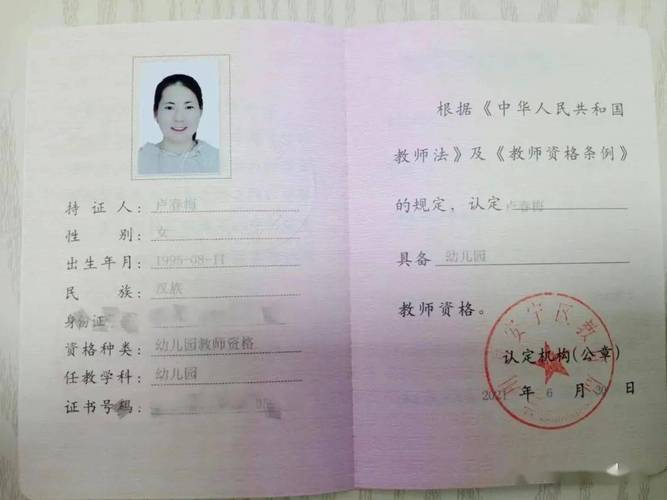 持 证 人：卢春梅
性 别：女
出生年月：1995-08-11
民 族：汉族
身份证
资格种类：幼儿园教师资格
任教学科：幼儿园
证书号码：
根据《中华人民共和国
教师法》及《教师资格条例》
的规定，认定 卢春梅
具备 幼儿园
教师资格。
安宁区教
认定机构(公章)
2021 年 6 月 30 日